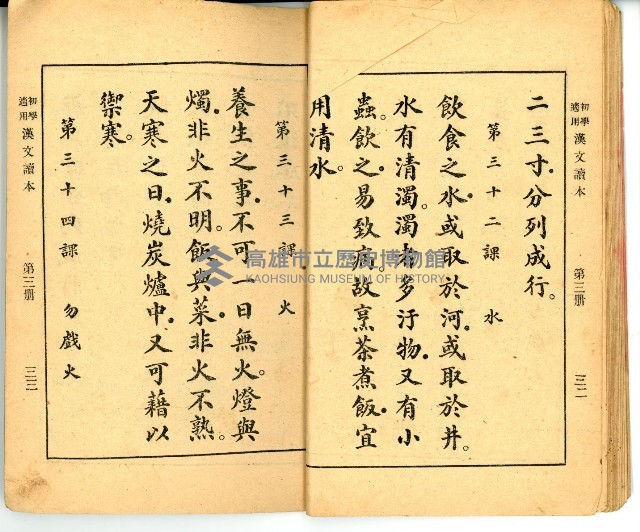 初學適用 漢文讀本 第三册 三二
二三寸。分列成行。
第三十二課 水
飲食之水。或取於河。或取於井。
水有清濁。濁者多汙物。又有小
蟲。飲之。易致疾。故烹茶煮飯。宜
用清水。
第三十三課 火
養生之事。不可一日無火。燈與
燭。非火不明。飯與菜。非火不熟。
天寒之日。燒炭爐中。又可藉以
禦寒。
第三十四課 勿戲火
初學適用 漢文讀本 第三册 三三
高雄市立歷史博物館
KAOHSIUNG MUSEUM OF HISTORY